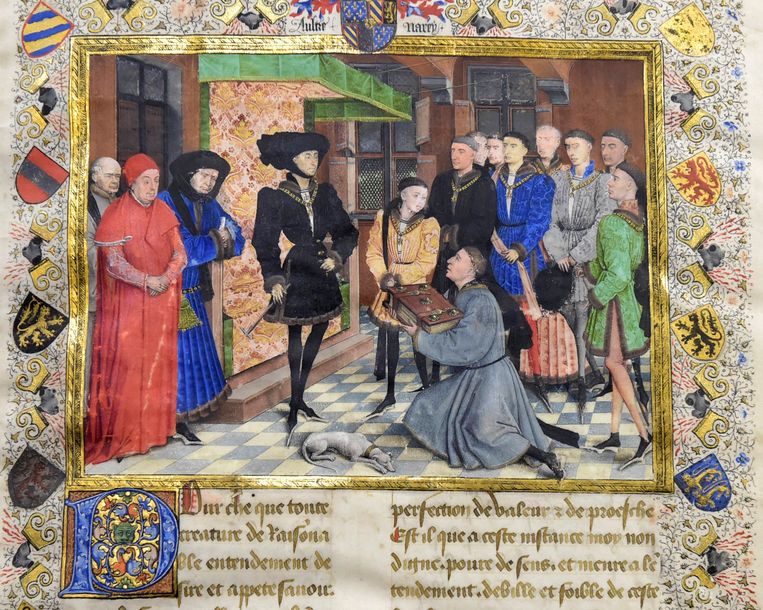 Aultre Narey
Our che que toute
creature de Raisona
ble entendement de
sire et appete sauoir
perfection de valeur & de proesche
Est il que a ceste instance moy non
digne, poure de sens, et menre a lē
tendement, debille et foible de ceste